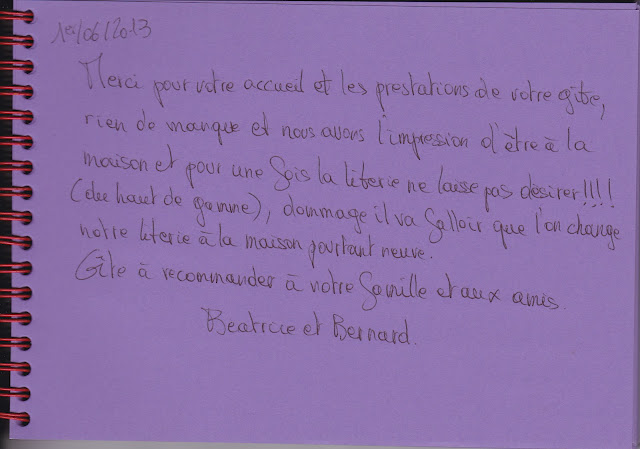 1er/06/2013
Merci pour votre accueil et les prestations de votre gîte,
rien de manque et nous avons l'impression d'être à la
maison et pour une fois la literie ne laisse pas désirer!!!!
(du haut de gamme), dommage il va falloir que l'on change
notre literie à la maison pourtant neuve.
Gîte à recommander à notre famille et aux amis.
Beatrice et Bernard.